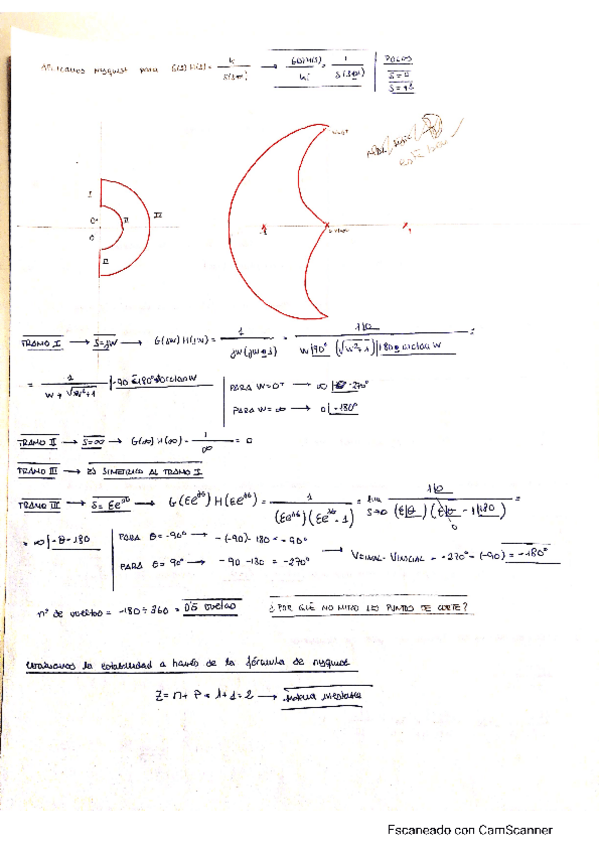 APLICAMOS NYQUIST PARA G(s)H(s) = K / S(S-1) → G(s)H(s) / K = 1 / S(S-1) POLOS
S=0
S=+1
I
II
III
TRAMO I → S=jW → G(jW)H(jW) = 1 / jW(jW-1) = 1|0 / W|90° (√W²+1)|180-arctan W =
= 1 / W · √W²+1 |-90-180°+arctan W
PARA W=0⁺ → ∞ |-270°
PARA W=∞ → 0 |-180°
TRAMO II → S=∞ → G(∞)H(∞) = 1 / ∞ = 0
TRAMO III → ES SIMETRICO AL TRAMO I
TRAMO → S=εe^jθ → G(εe^jθ)H(εe^jθ) = 1 / (εe^jθ)(εe^jθ-1) = 1|0 / (ε|θ)(ε|θ - 1|180) =
0
= ∞ |-θ-180
PARA θ=-90° → -(-90)-180 = -90°
PARA θ=90° → -90-180 = -270°
→ = -270°-(-90) = -180°
nº de vueltas = -180÷360 = 0'5 vueltas
¿POR QUÉ NO MIRO LOS PUNTOS DE CORTE?
Evaluamos la estabilidad a través de la fórmula de nyquist
Z = n + P = 1+1 = 2 → sistema inestable
Escaneado con CamScanner